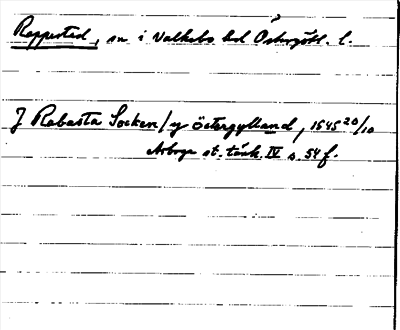 Rappestad, sn i Valkebo hd Östergötl. l.
J Rabasta Socken / y östergylland, 1545 20/10
Arboga st. tänk. IV s. 54 f.